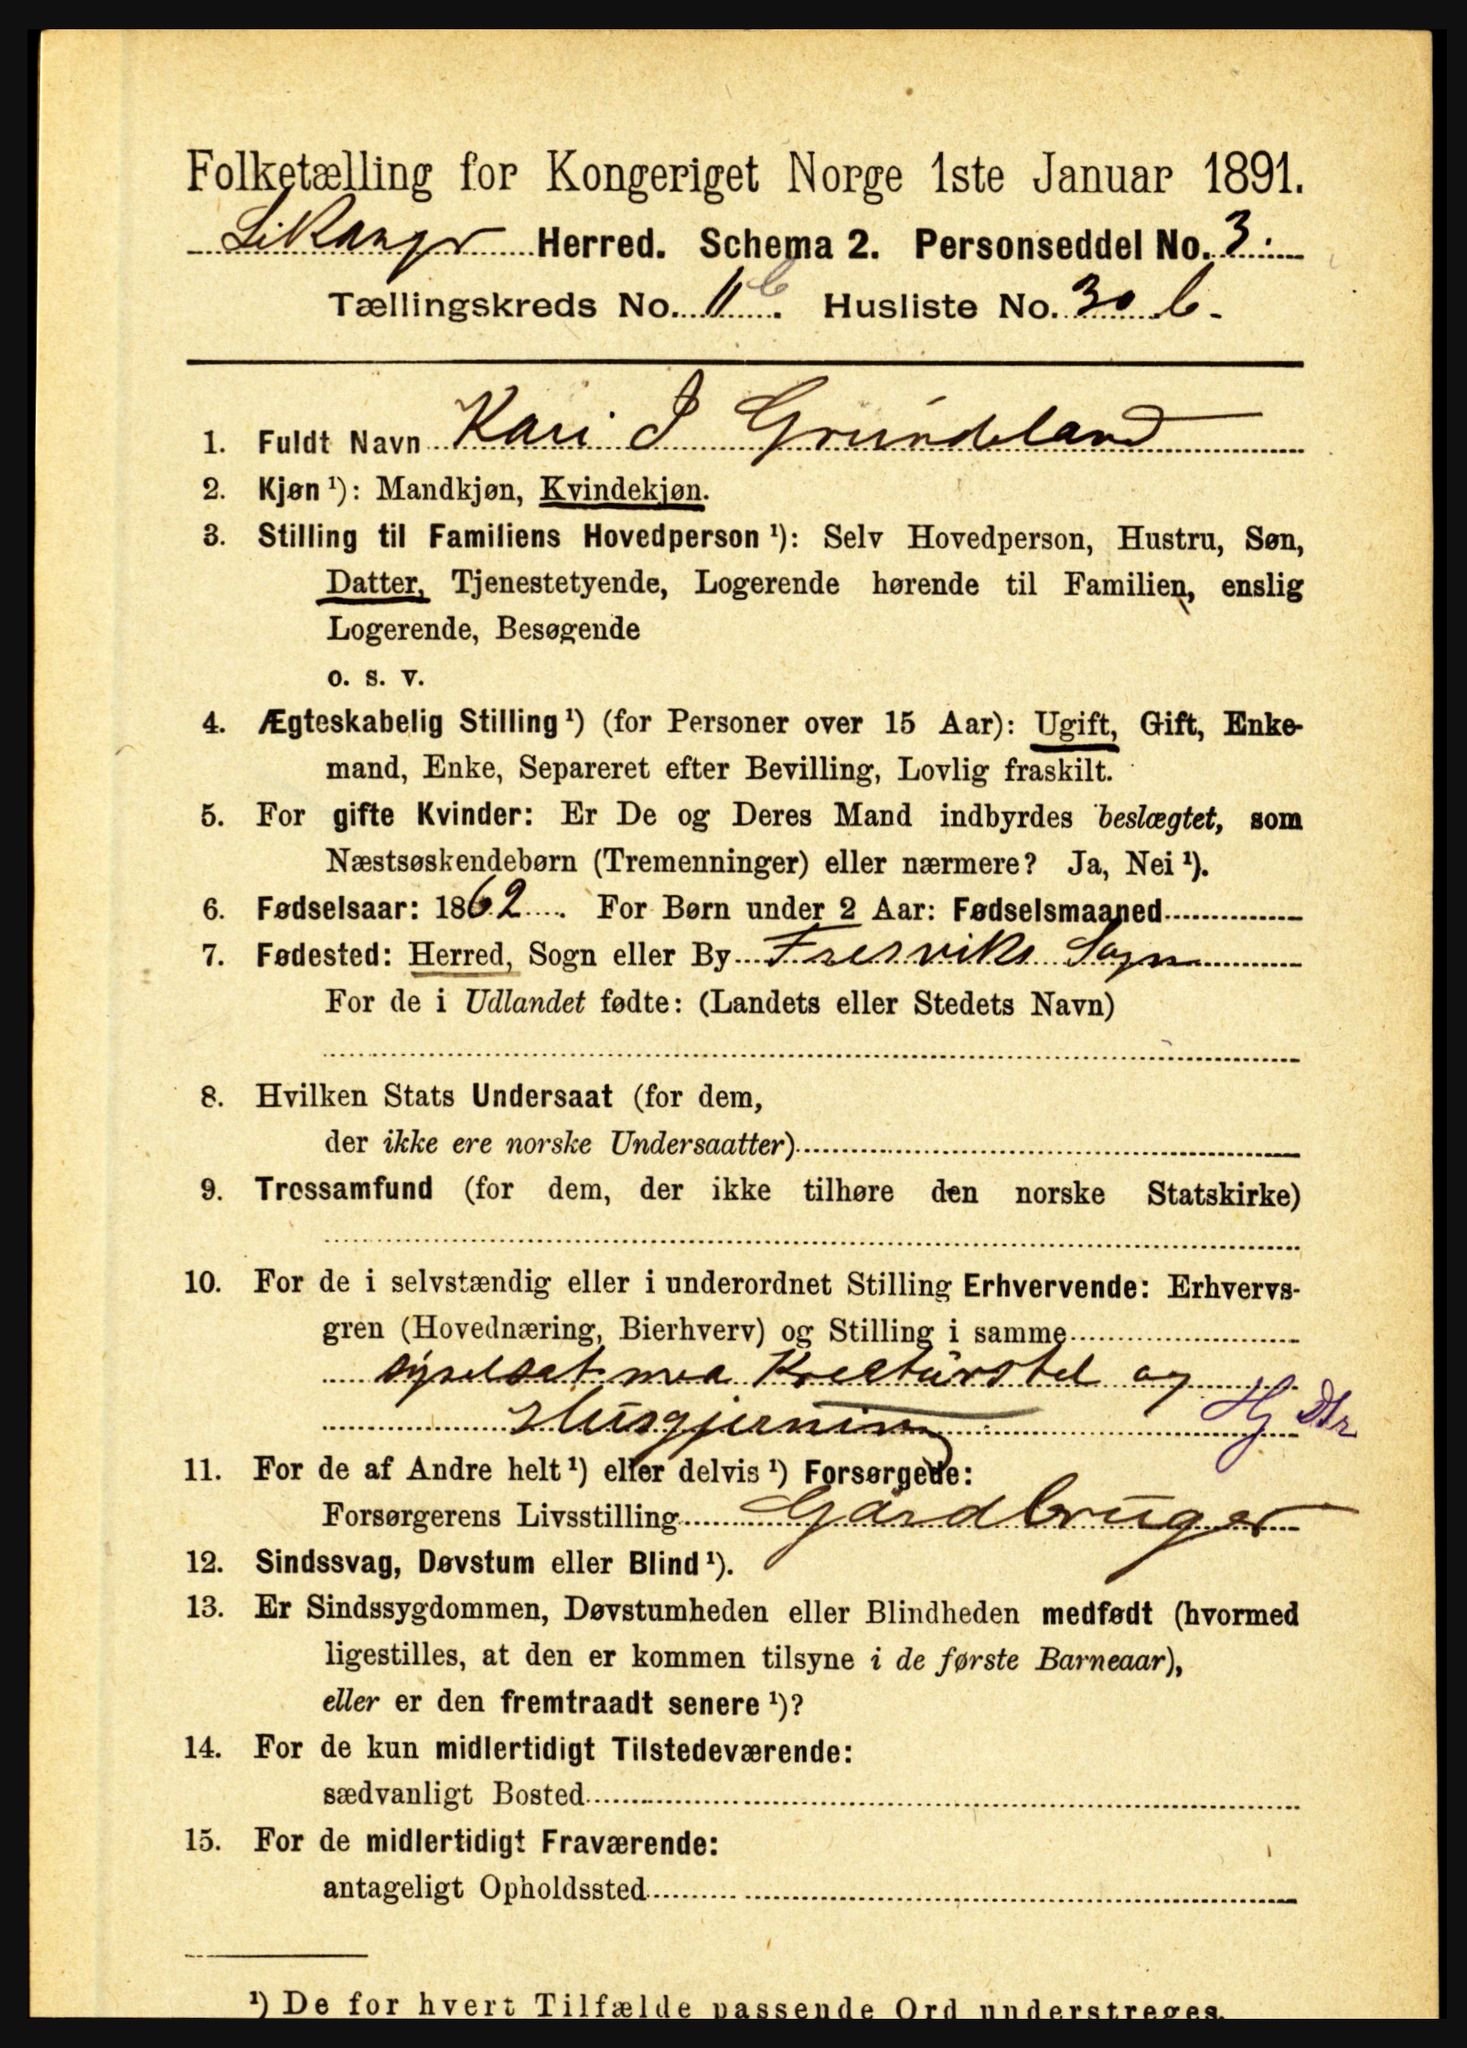 Folketælling for Kongeriget Norge 1ste Januar 1891.
Leikanger Herred. Schema 2. Personseddel No. 3.
Tællingskreds No. 11 b. Husliste No. 30 b.
1. Fuldt Navn Kari J Grundeland
2. Kjøn¹): Mandkjøn, Kvindekjøn.
3. Stilling til Familiens Hovedperson¹): Selv Hovedperson, Hustru, Søn,
Datter, Tjenestetyende, Logerende hørende til Familien, enslig
Logerende, Besøgende
o. s. v.
4. Ægteskabelig Stilling¹) (for Personer over 15 Aar): Ugift, Gift, Enke-
mand, Enke, Separeret efter Bevilling, Lovlig fraskilt.
5. For gifte Kvinder: Er De og Deres Mand indbyrdes beslægtet, som
Næstsøskendebørn (Tremenninger) eller nærmere? Ja, Nei¹).
6. Fødselsaar: 1862. For Børn under 2 Aar: Fødselsmaaned
7. Fødested: Herred, Sogn eller By Fresviks Sogn
For de i Udlandet fødte: (Landets eller Stedets Navn)
8. Hvilken Stats Undersaat (for dem,
der ikke ere norske Undersaatter)
9. Trossamfund (for dem, der ikke tilhøre den norske Statskirke)
10. For de i selvstændig eller i underordnet Stilling Erhvervende: Erhvervs-
gren (Hovednæring, Bierhverv) og Stilling i samme
syselsat med Kreaturstel og
Husgjerning Hj Dtr
11. For de af Andre helt¹) eller delvis¹) Forsørgede:
Forsørgerens Livsstilling Gårdbruger
12. Sindssvag, Døvstum eller Blind¹).
13. Er Sindssygdommen, Døvstumheden eller Blindheden medfødt (hvormed
ligestilles, at den er kommen tilsyne i de første Barneaar),
eller er den fremtraadt senere¹)?
14. For de kun midlertidigt Tilstedeværende:
sædvanligt Bosted
15. For de midlertidigt Fraværende:
antageligt Opholdssted
¹) De for hvert Tilfælde passende Ord understreges.